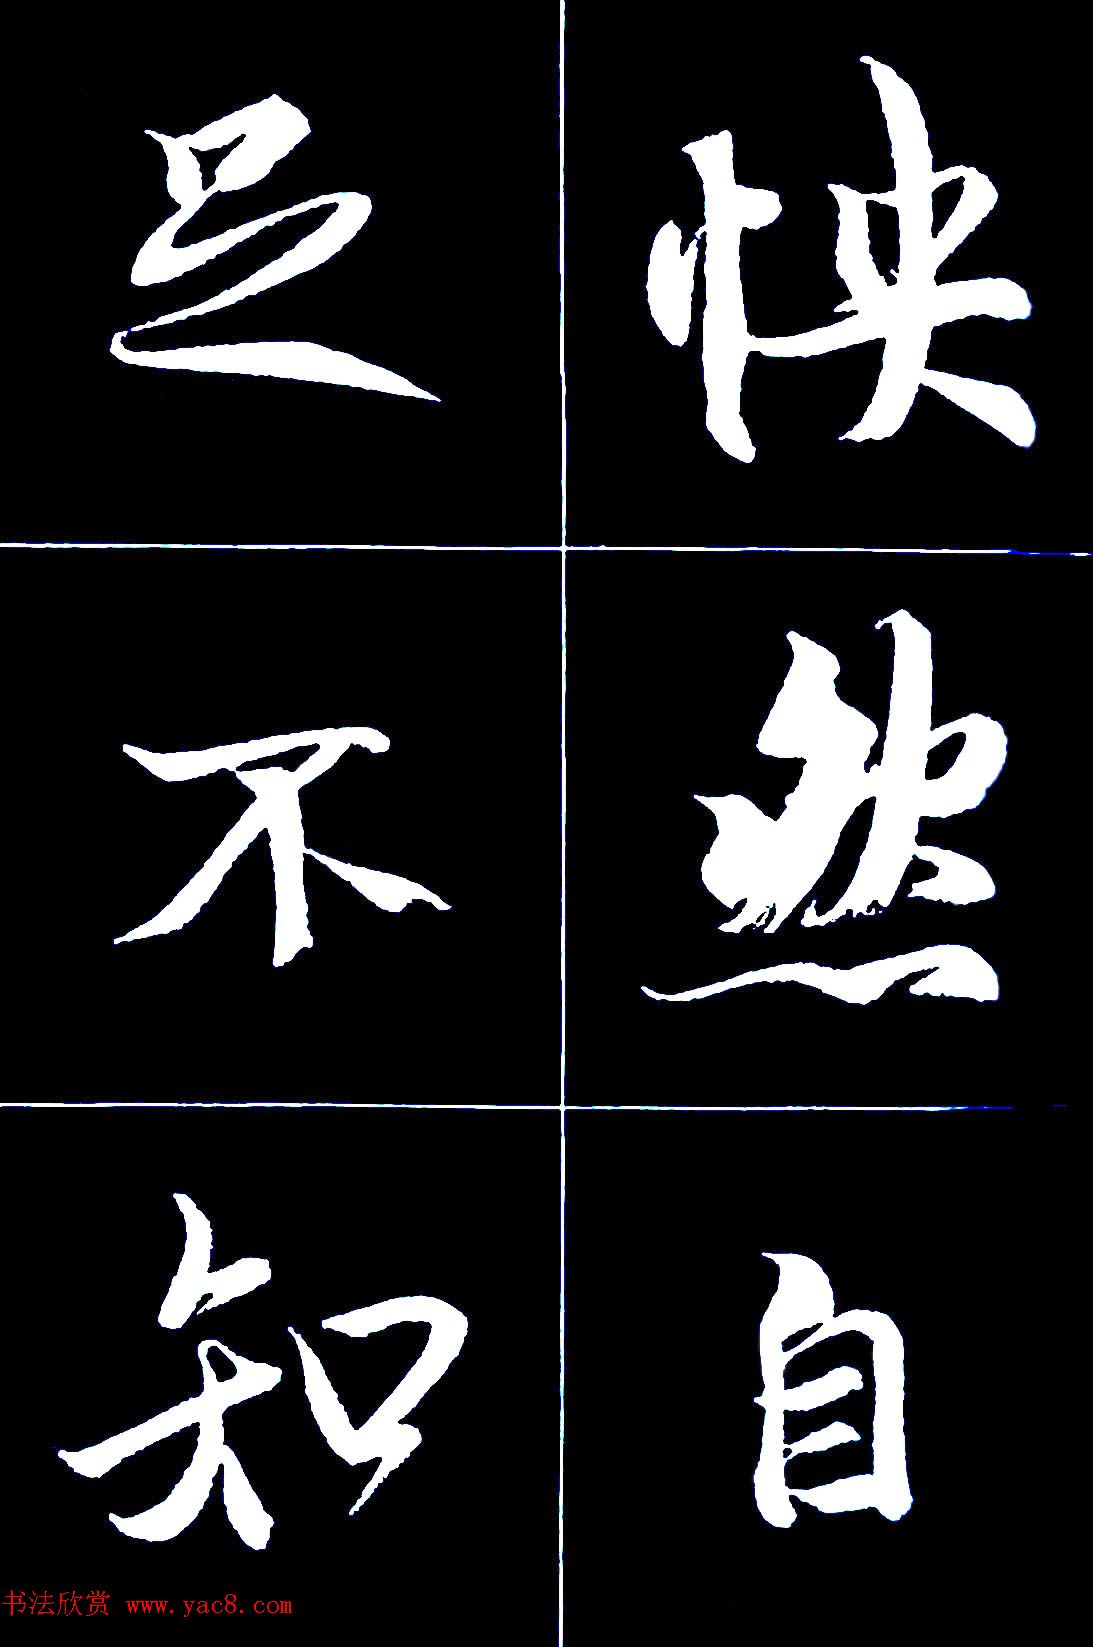 快然自
足不知
书法欣赏 www.yac8.com